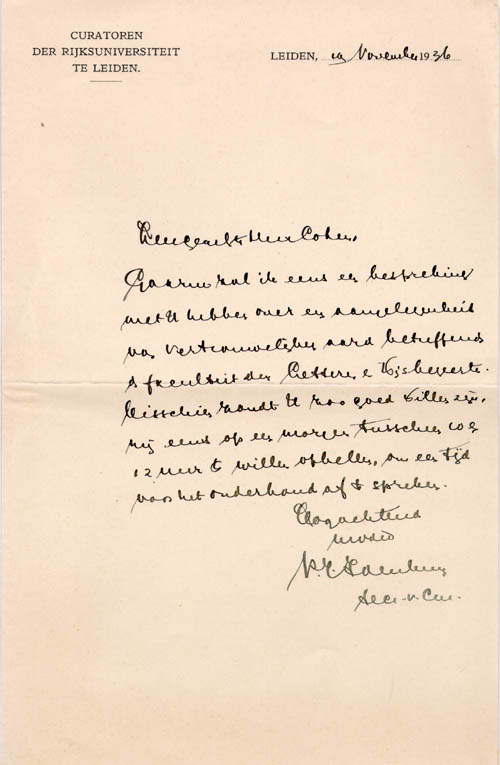 CURATOREN
DER RIJKSUNIVERSITEIT
TE LEIDEN.
LEIDEN, November 1936
Heer Cohen,
Gaarne zal ik eens een bespreking
met U hebben over een aangelegenheid
van vertrouwelijken aard betreffende
de faculteit der Letteren en Wijsbegeerte.
Misschien zoudt U zoo goed willen zijn,
mij eens op een morgen tusschen 10 en
12 uur te willen opbellen, om een tijd
voor het onderhoud af te spreken.
Hoogachtend
Secr. v. Cur.